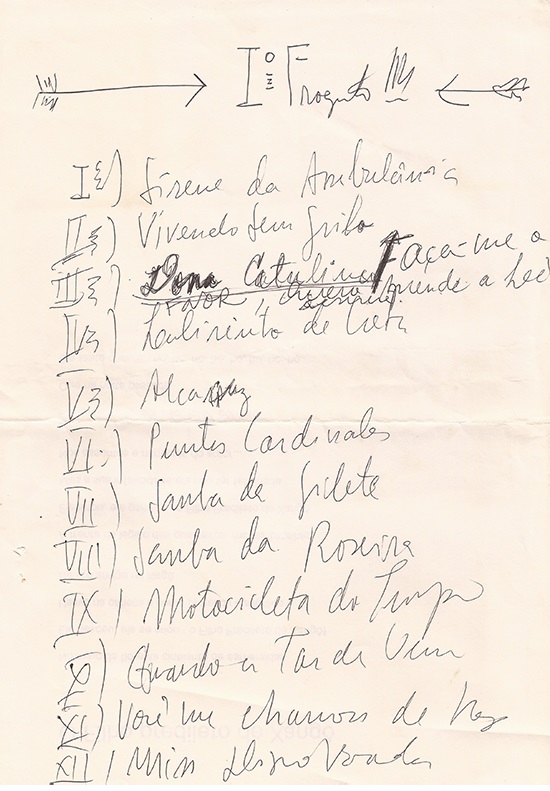 Iº Projeto
I) Sirene da Ambulância
II) Vivendo sem grilo
III) Dona Catulina Faça-me o
FAVOR, aprende a ler
IV) Labirinto de Creta
V) Alcatraz
VI) Puntos Cardinales
VII) Samba da gilete
VIII) Samba da Roseira
IX) Motocicleta do Tempo
X) Quando a Tarde Vem
XI) Você me chamou de
XII) Miss